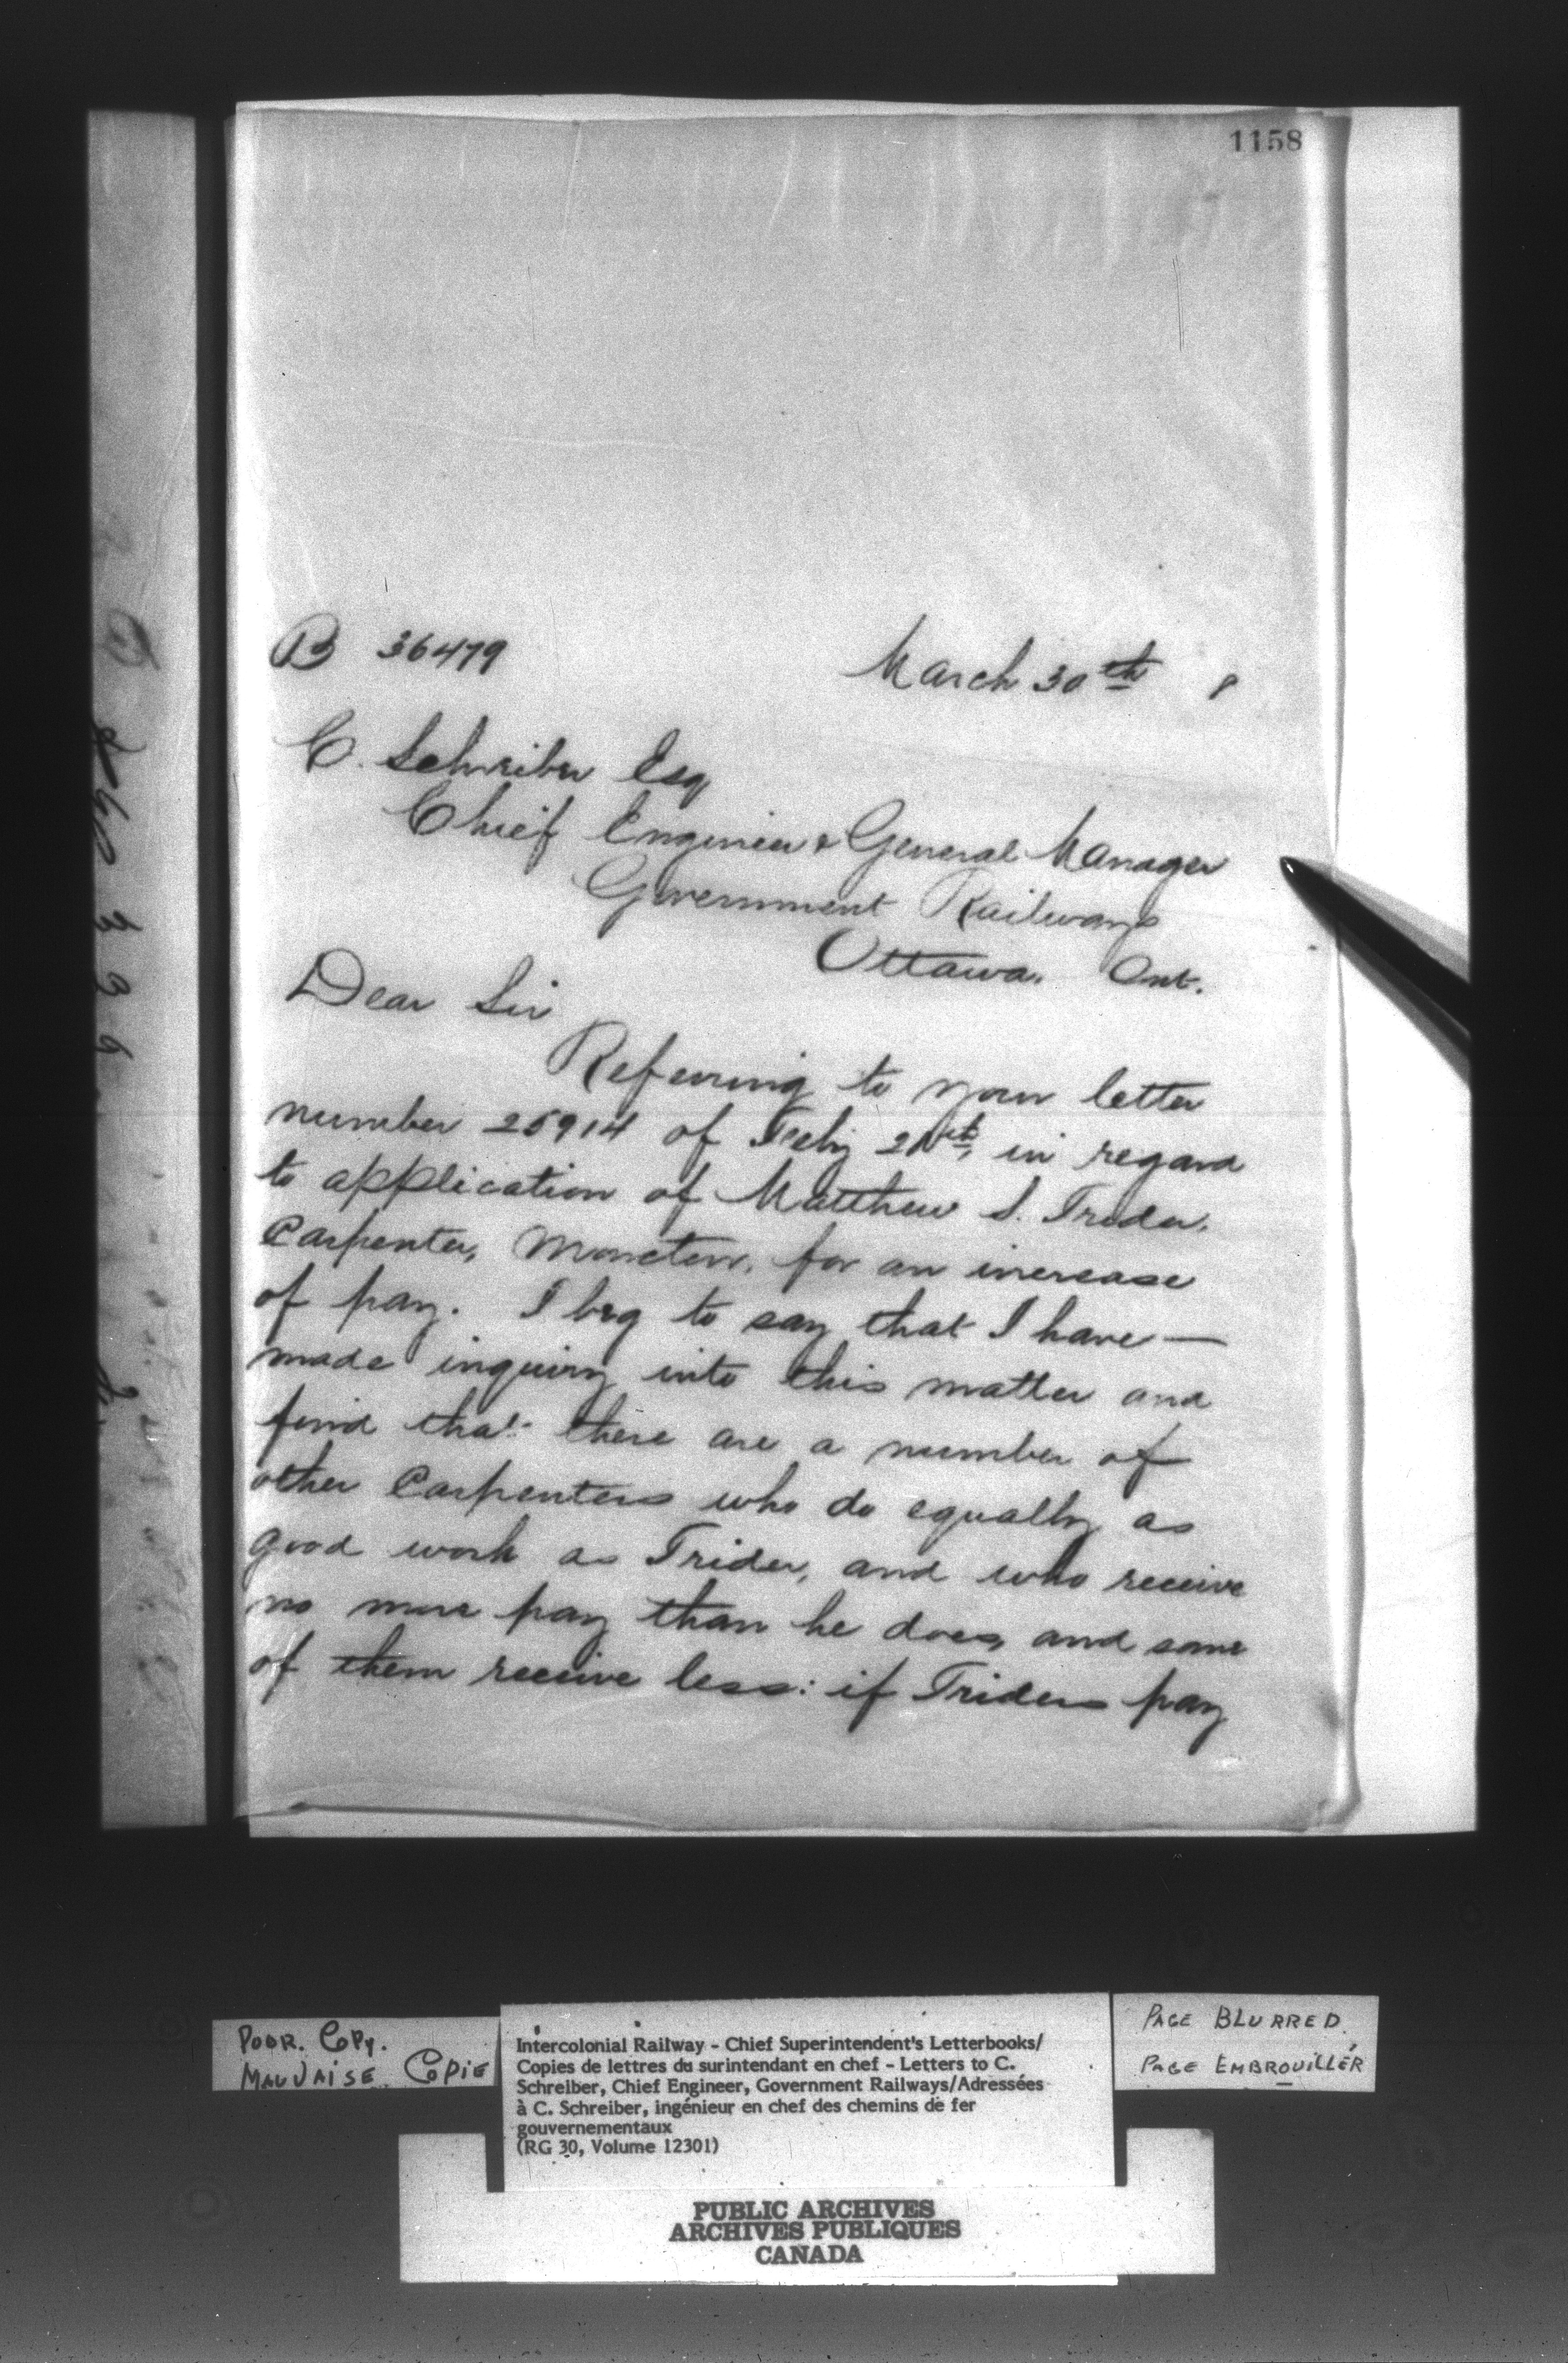 1158
B 36479
March 30th 8
C. Schreiber Esq
Chief Engineer & General Manager
Government Railways
Ottawa. Ont.
Dear Sir
Referring to your letter
number 25914 of Feby 21st, in regard
to application of Matthew S. Trider,
Carpenter, Moncton, for an increase
of pay. I beg to say that I have —
made inquiry into this matter and
find that there are a number of
other Carpenters who do equally as
good work as Trider, and who receive
no more pay than he does, and some
of them receive less: if Triders pay
POOR. COPY.
MAUVAISE. COPIE
Intercolonial Railway - Chief Superintendent's Letterbooks/
Copies de lettres du surintendant en chef - Letters to C.
Schreiber, Chief Engineer, Government Railways/Adressées
à C. Schreiber, ingénieur en chef des chemins de fer
gouvernementaux
(RG 30, Volume 12301)
PAGE BLURRED.
PAGE EMBROUILLÉR
PUBLIC ARCHIVES
ARCHIVES PUBLIQUES
CANADA